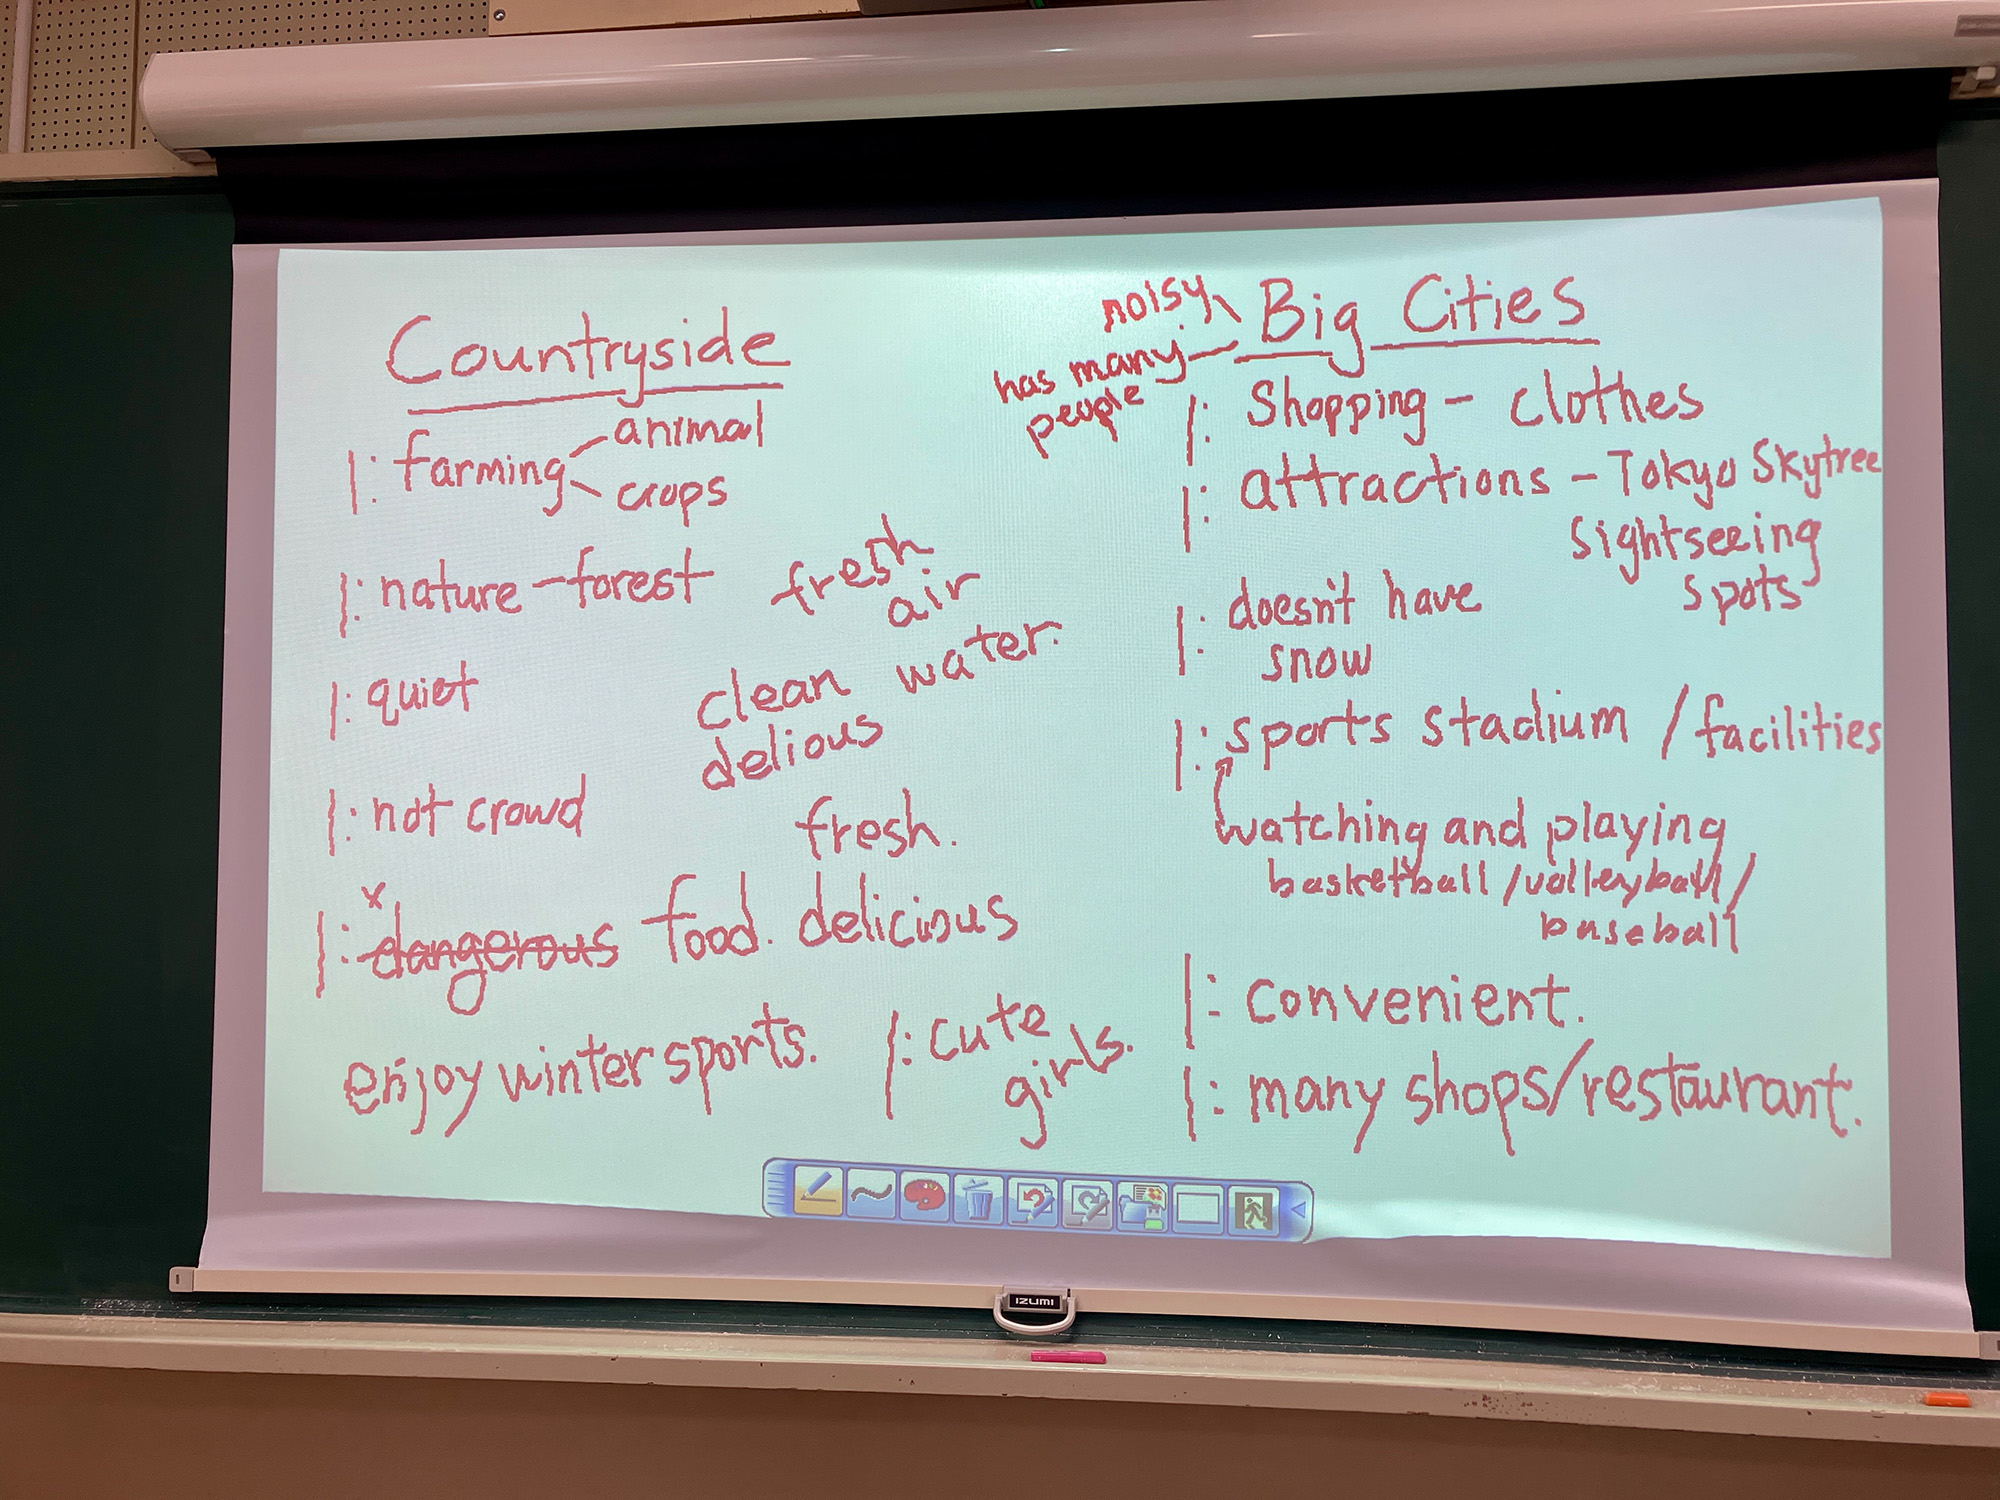 Countryside
|: farming
animal
crops
|: nature - forest
fresh
air
|: quiet
clean water.
delious
|: not crowd
fresh.
x
|: dangerous food. delicious
enjoy winter sports.
|: cute
girls.
noisy
has many
people
Big Cities
|: Shopping - clothes
|: attractions - Tokyo Skytree
Sightseeing
spots
|: doesn't have
snow
|: sports stadium / facilities
watching and playing
basketball / volleyball /
baseball
|: convenient.
|: many shops/restaurant.
IZUMI